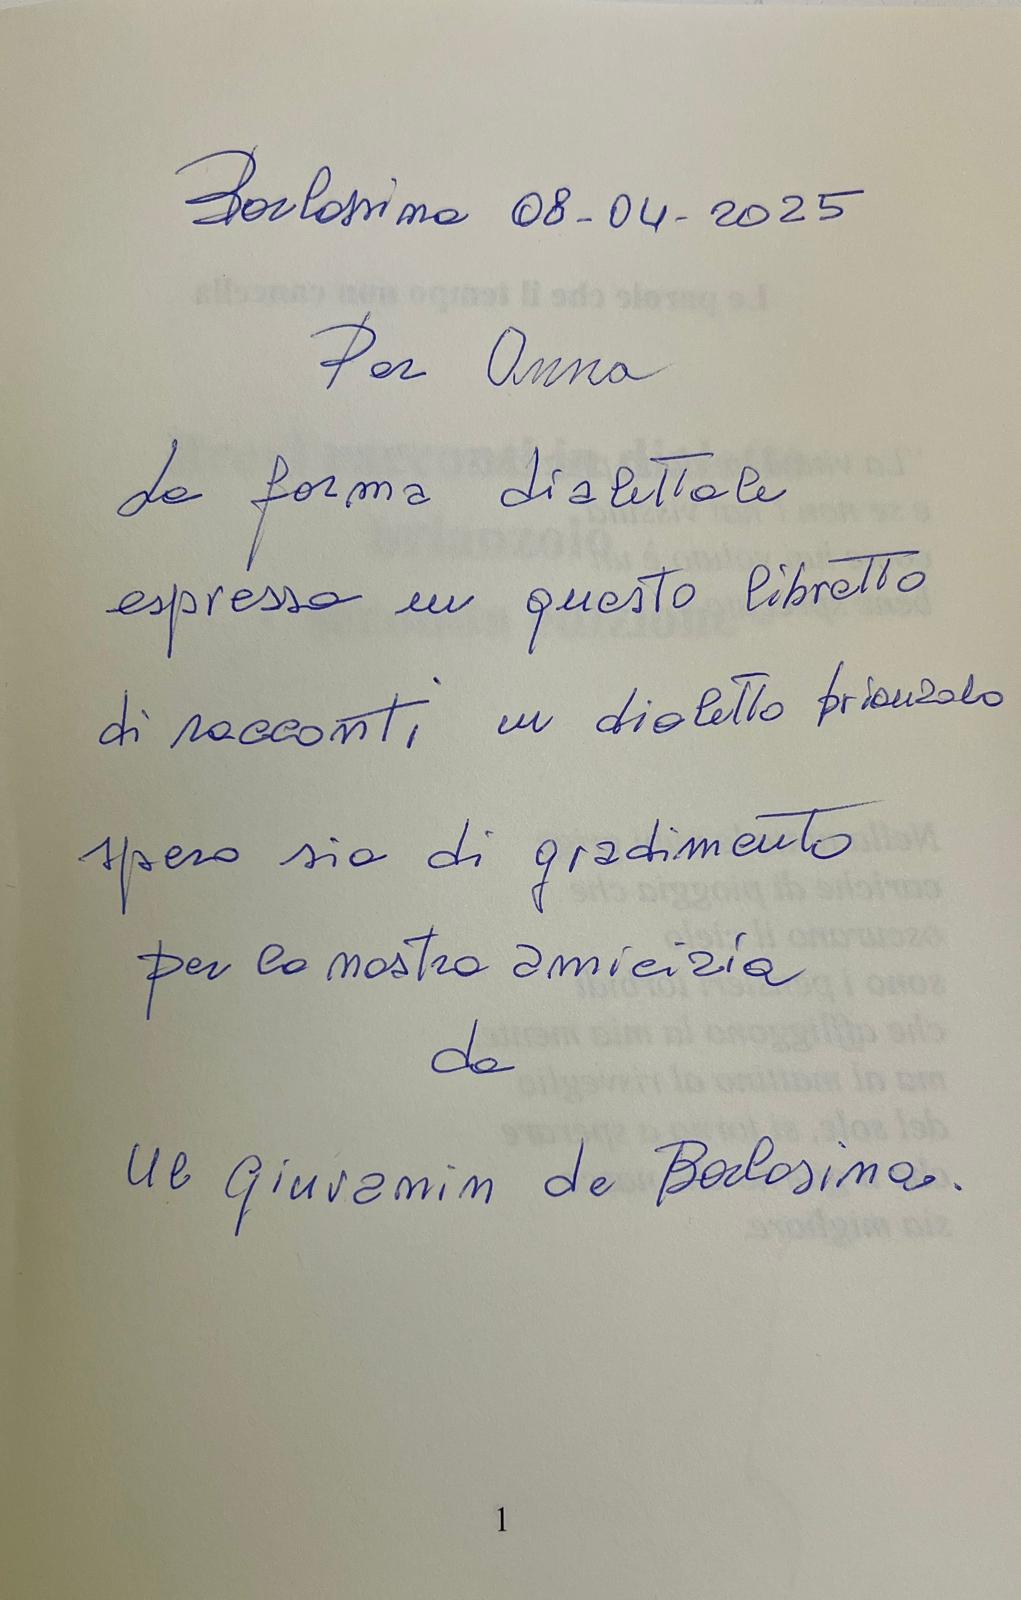 Barlassina 08-04-2025
Per Anna
la forma dialettale
espressa in questo libretto
di racconti in dialetto brianzolo
spero sia di gradimento
per la nostra amicizia
da
Ul Giuvanin de Barlasina.
1